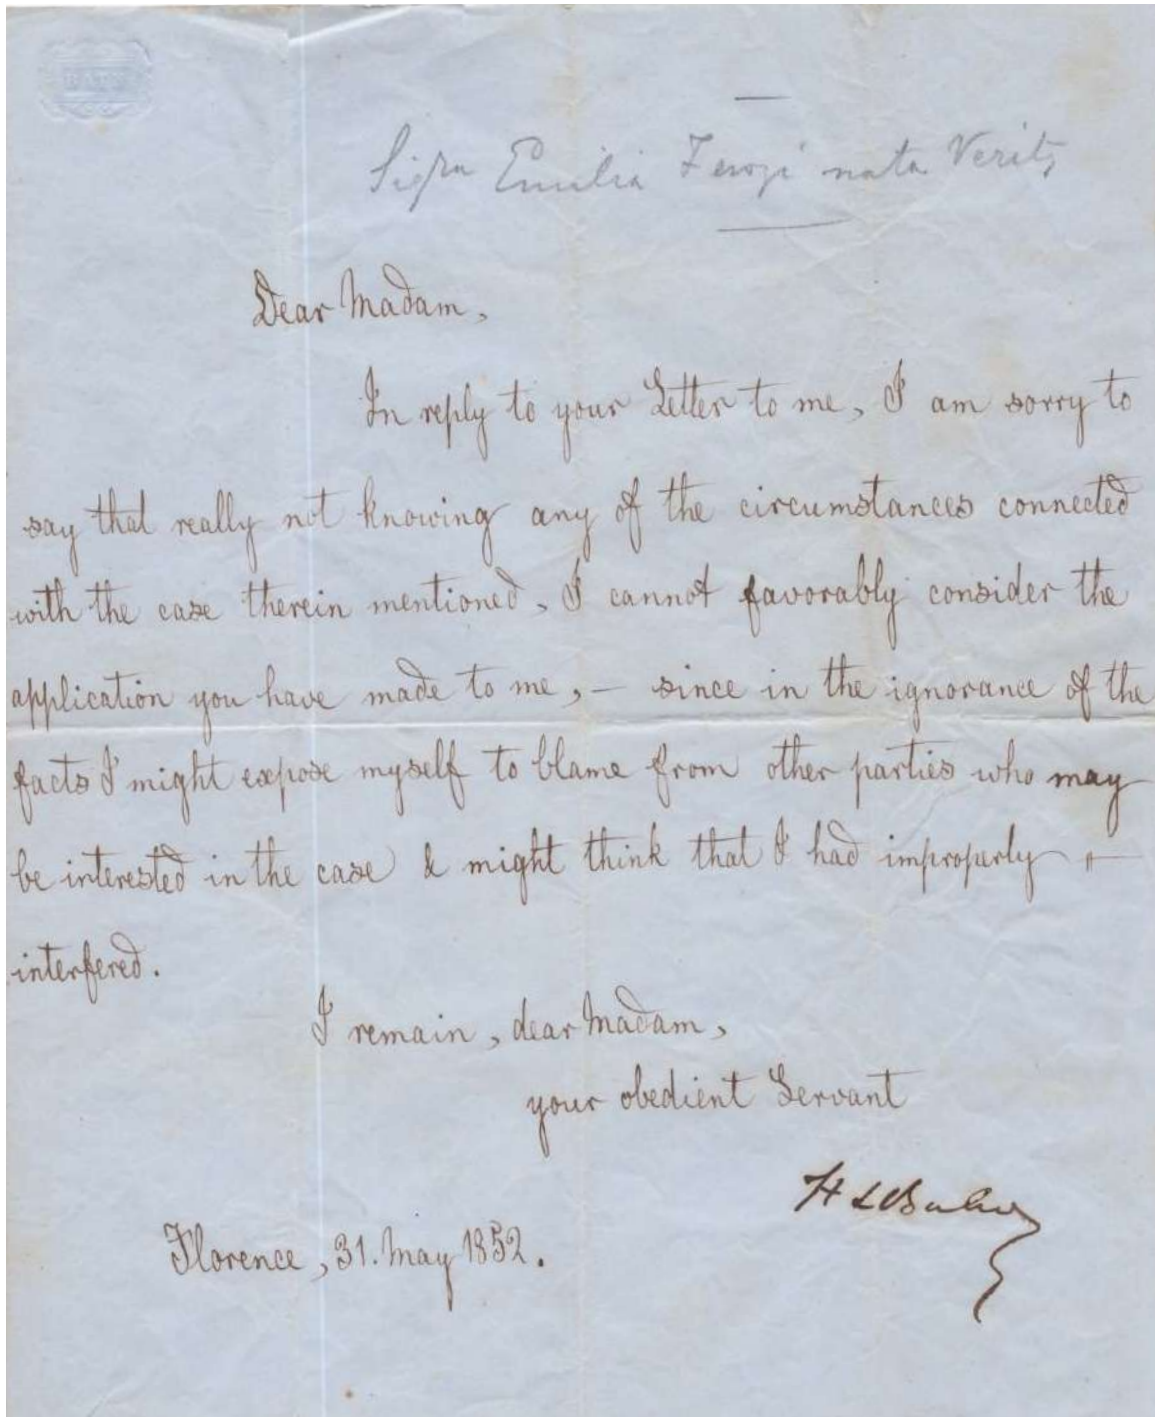 BATH
Sigra Emilia nata
Dear Madam,
In reply to your Letter to me, I am sorry to
say that really not knowing any of the circumstances connected
with the case therein mentioned, I cannot favorably consider the
application you have made to me, — since in the ignorance of the
facts I might expose myself to blame from other parties who may
be interested in the case & might think that I had improperly
interfered.
I remain, dear Madam,
your obedient Servant
Florence, 31. May 1852.